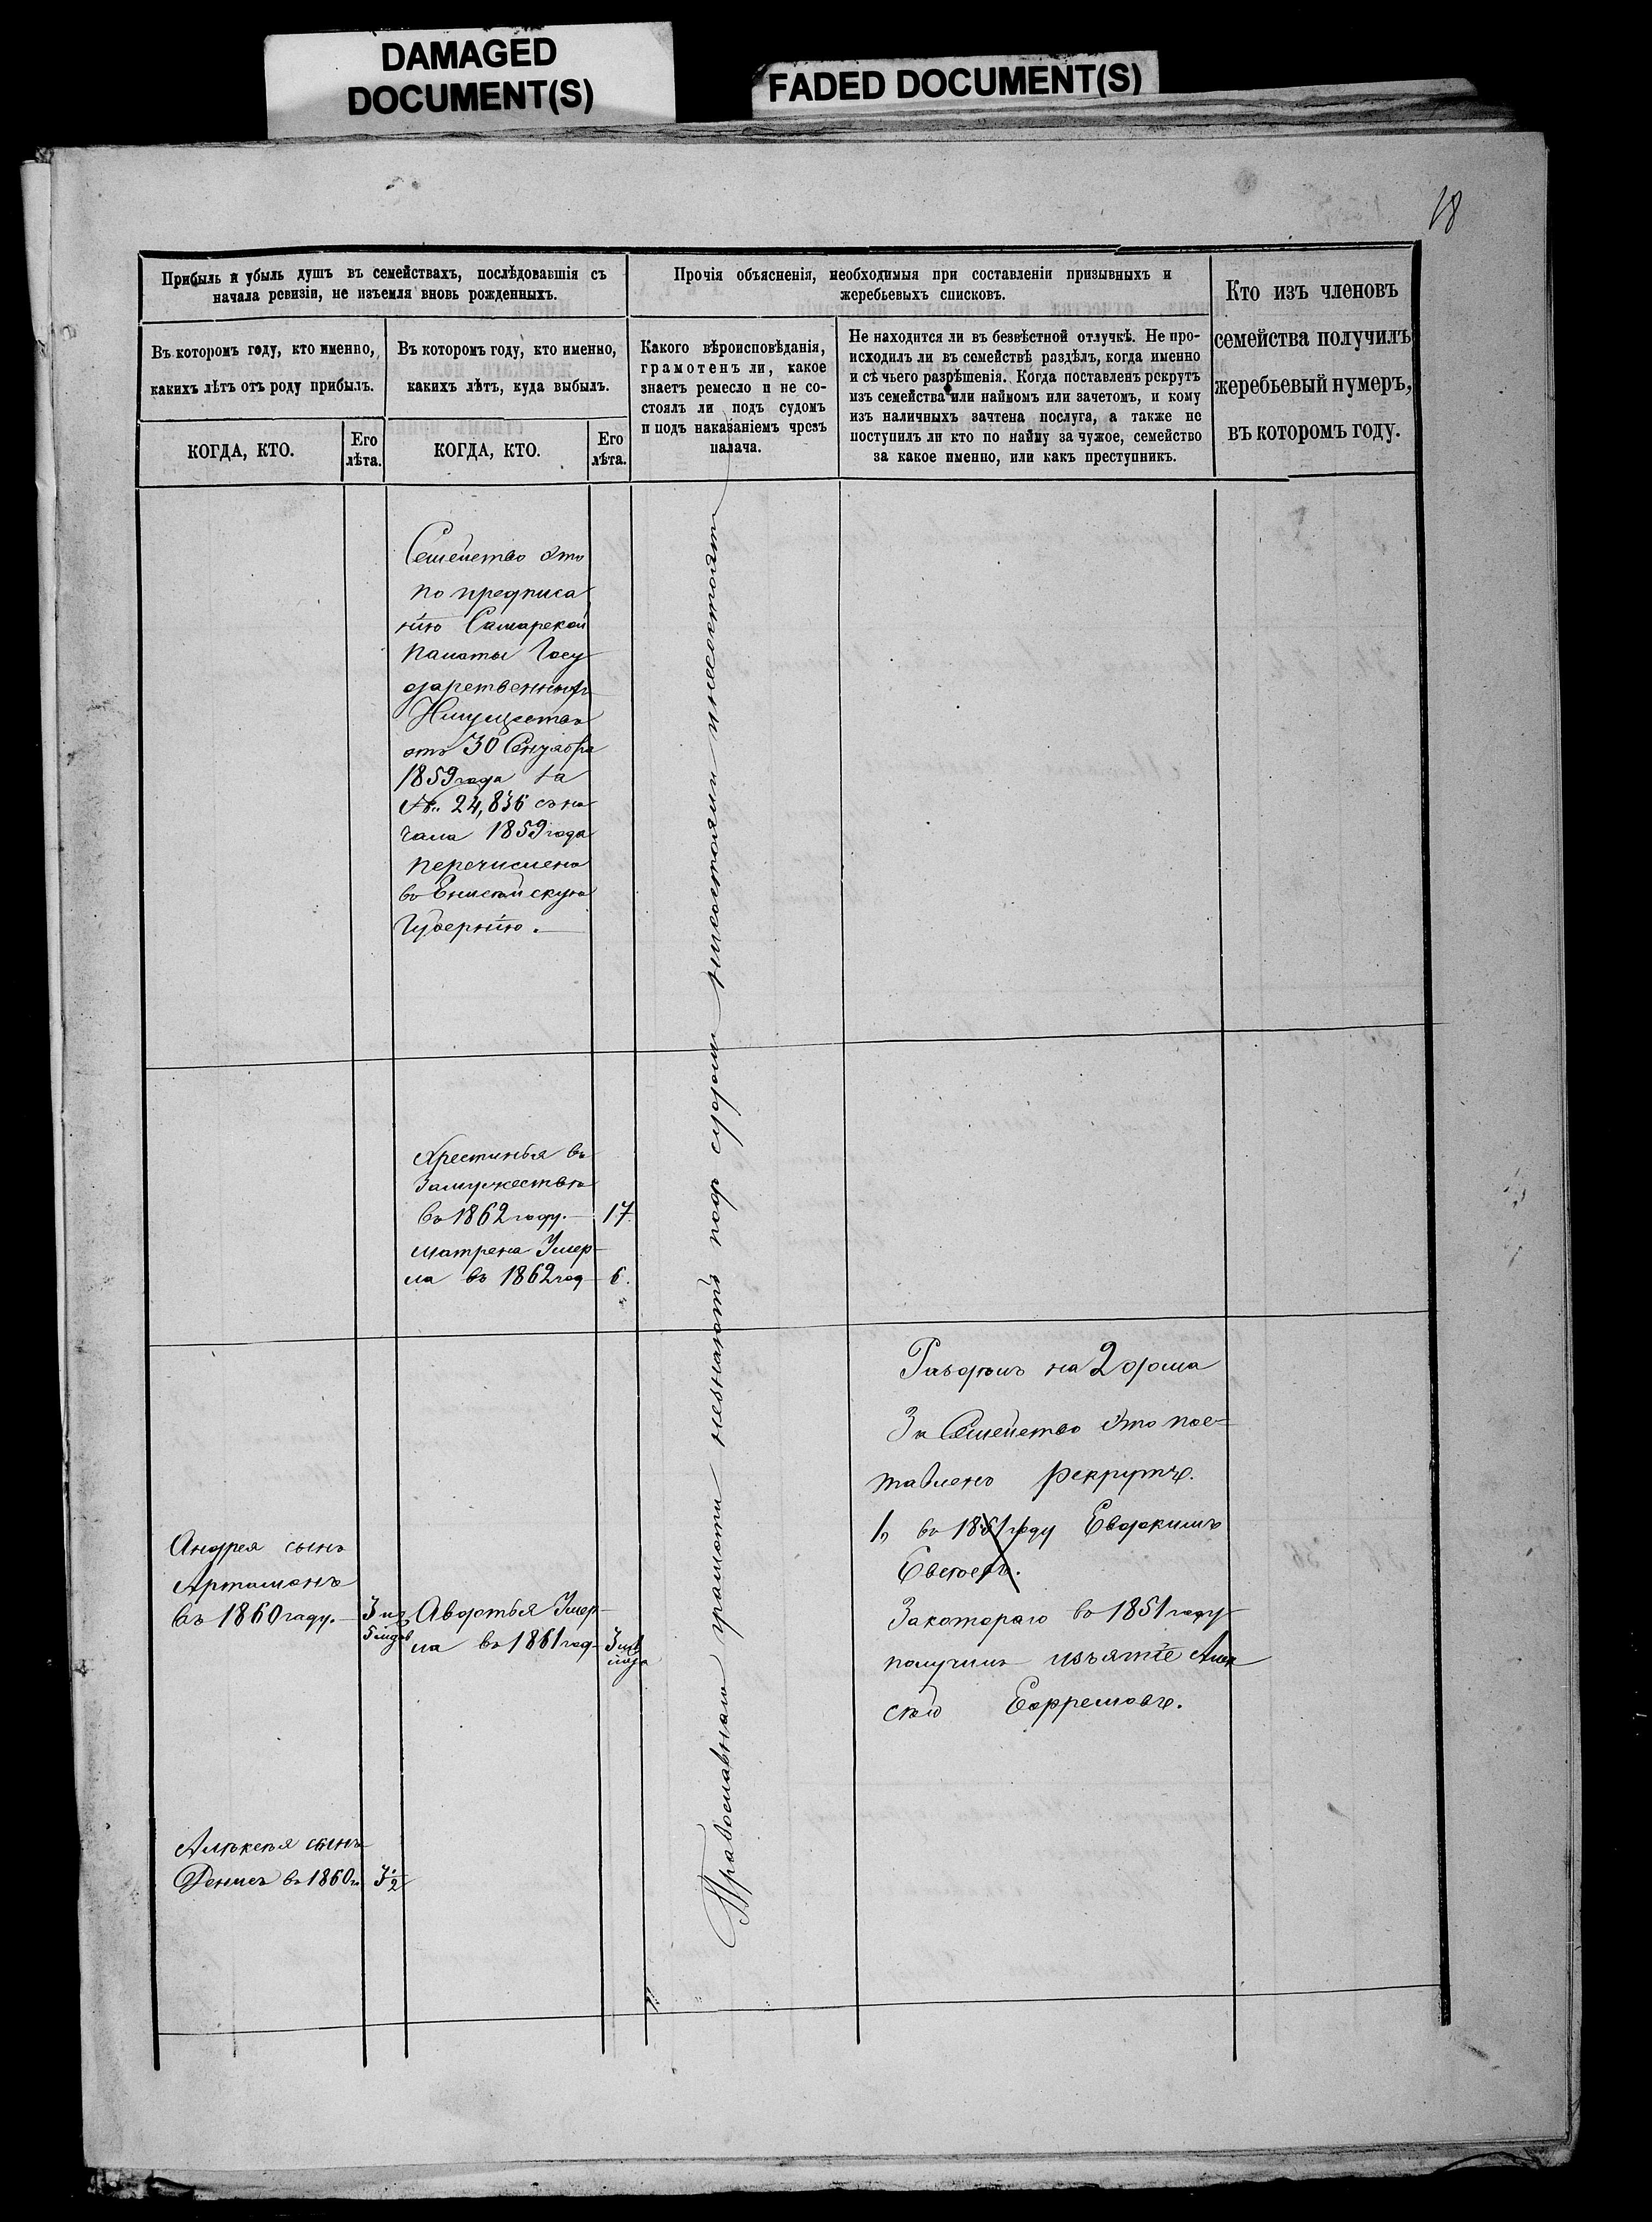 DAMAGED
DOCUMENT(S)
FADED DOCUMENT(S)
18
Прибыль и убыль душъ въ семействахъ, послѣдовавшія съ
начала ревизіи, не изъемля вновь рожденныхъ.
Прочія объясненія, необходимыя при составленіи призывныхъ и
жеребьевыхъ списковъ.
Кто изъ членовъ
семейства получилъ
жеребьевый нумеръ,
въ которомъ году.
Въ которомъ году, кто именно,
какихъ лѣтъ отъ роду прибылъ.
Въ которомъ году, кто именно,
какихъ лѣтъ, куда выбылъ.
Какого вѣроисповѣданія,
грамотенъ ли, какое
знаетъ ремесло и не со-
стоялъ ли подъ судомъ
и подъ наказаніемъ чрезъ
палача.
Не находится ли въ безвѣстной отлучкѣ. Не про-
исходилъ ли въ семействѣ раздѣлъ, когда именно
и съ чьего разрѣшенія. Когда поставленъ рекрутъ
изъ семейства или наймомъ или зачетомъ, и кому
изъ наличныхъ зачтена послуга, а также не
поступилъ ли кто по найму за чужое, семейство
за какое именно, или какъ преступникъ.
КОГДА, КТО.
Его
лѣта.
КОГДА, КТО.
Его
лѣта.
Семейство это
по предписа
нію Самарской
палаты Госу
дарственныхъ
Имуществъ
отъ 30 Сентября
1859 года за
№ 24,836 съ на
чала 1859 года
перечислено
въ Енисейскую
Губернію.
Хрестинья въ
Замужество
въ 1862 году. 17
Матрена Умер-
ла въ 1862 год 6.
Православнаго грамоти незнаютъ подъ судомъ несостояли и несостоятъ
Раздѣлъ на 2 дома
За Семейство это пос-
тавлено рекрутъ.
1, въ 1851 году Евдокимъ
Евсѣевъ.
Закотораго въ 1851 году
получилъ изъятіе Алек
сѣй Ефремовъ.
Андрея сынъ
Артамонъ
въ 1860 году. 3 н.
Авдотья Умер-
ла въ 1861 год 3 н
Алексея сынъ
Денисъ въ 1860 г. 3/2